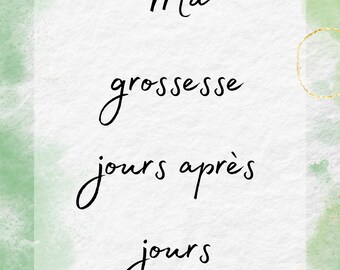 Ma
grossesse
jours après
jours